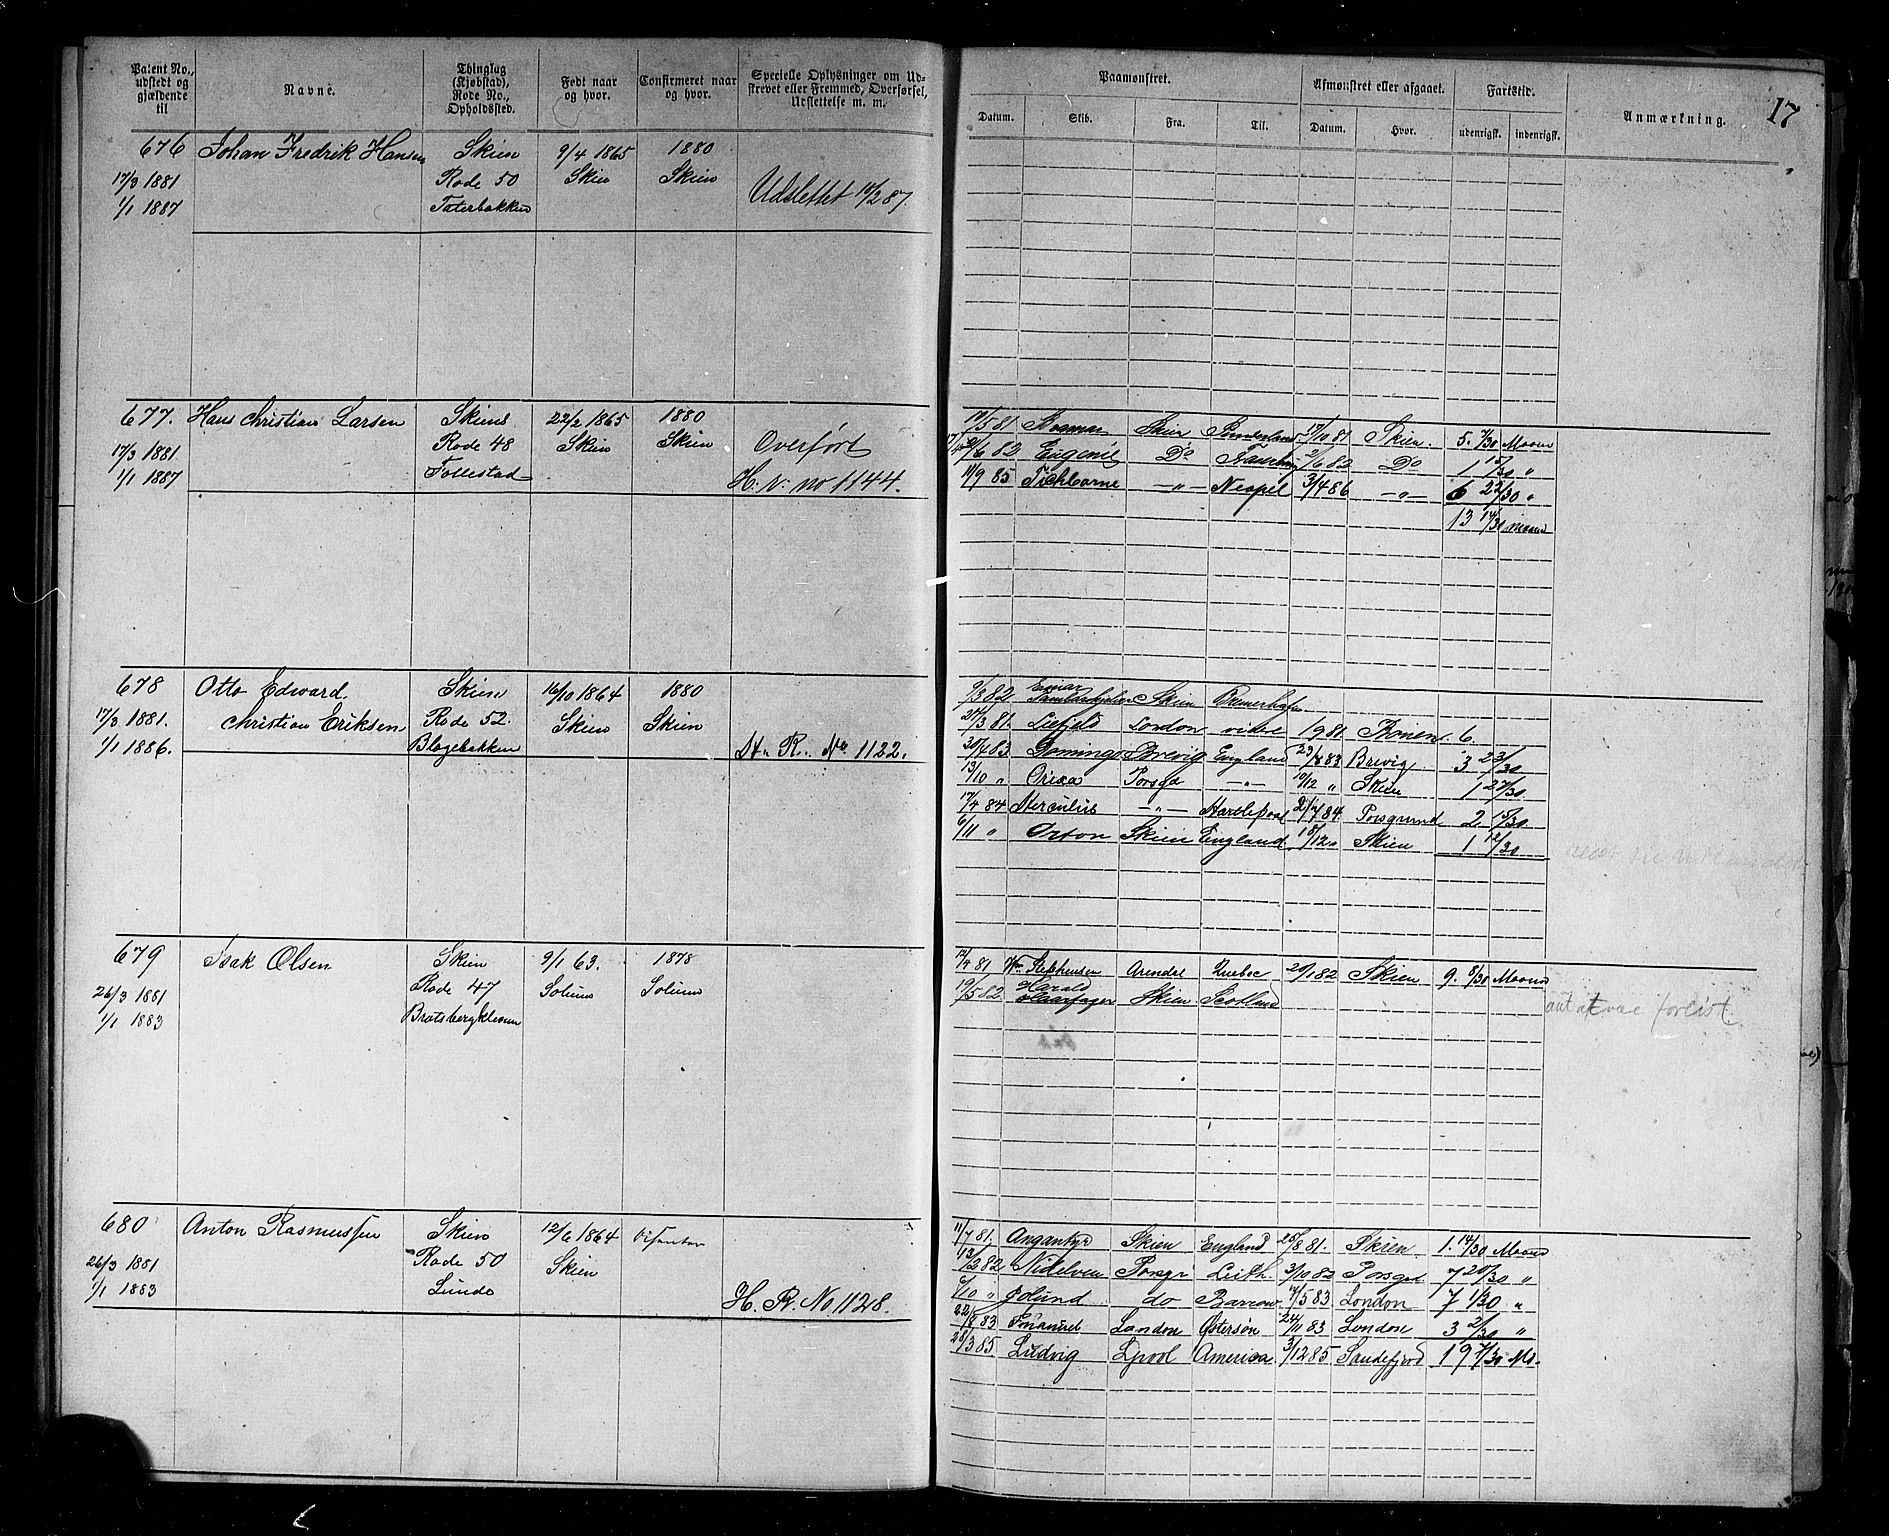 Patent No., udstedt og gjældende til
Navne.
Thinglag (Kjøbstad), Rode No., Opholdssted.
Født naar og hvor.
Confirmeret naar og hvor.
Specielle Oplysninger om Udskrevet eller Fremmed, Overførsel, Udslettelse m. m.
Paamønstret.
Datum. Skib. Fra. Til.
Afmønstret eller afgaaet.
Datum. Hvor.
Fartstid.
udenrigsk. indenrigsk.
Anmærkning.
17
676 Johan Fredrik Hansen Skien 9/4 1865 1880
17/3 1881 Rode 50 Skien Skien
1/1 1887 Taterbakken Udslettet 10/2 87.
677. Hans Christian Larsen Skiens 22/2 1865 1880
17/3 1881 Rode 48 Skien Skien Overført
1/1 1887 Follestad H. v. no 1144.
17/5 81 Skien Sunderland 17/10 81 Skien. 5. 7/30 Maaned
6 82 Eugenie Do 2/6 82 Do 1 15/30 "
11/9 85 Tichborne —"— Neapel 3/4 86 —"— 6 22/30 "
13 14/30 maaned
678 Otto Edward Skien 16/10 1864 1880
17/3 1881. Christian Eriksen Rode 52. Skien Skien
1/1 1886. Blegebakken H. R. No 1122.
9/3 82 Einar Tambarskjelver Skien Bremerhafen
27/3 81. Liefjeld London vistre 1981 6.
30/4 83 Domingo Brevig England 23/8 83 Brevig 3 23/30
13/10 " Orixa Porsgd —"— 10/12 " Skien 1 27/30
17/4 84 Herculus —"— Hartlepool 2/7 84. Porsgrund 2 15/30
6/11 " Orton Skien England 18/12 " Skien 1 12/30
679 Isak Olsen Skien 9/1 63. 1878
26/3 1881 Rode 47 Solum Solum
1/1 1883 Bratsbergkleven
12/4 81 Stephensen Arendal Quebec 20/1 82 Skien 9. 8/30 Maaned
19/5 82 Harald Haarfager Skien Scotland
antat at vae forlist.
680 Anton Rasmussen Skien 12/6 1864
26/3 1881 Rode 50 Skien
1/1 1883 Lunde H. R. No 1128.
11/7 81. Angantyr Skien England 25/8 81. Skien. 1. 14/30 Maaned
13/2 82 Nidelven Porsgr Leith 3/10 82 Porsgrd 7 20/30 "
6/10 " do Barrow 7/5 83 London 7 1/30 "
22/8 83 Emanuel London Østersøn 24/11 83 London 3 2/30 "
28/3 85 Ludvig Lpool America 3/12 85 Sandefjord 19 7/30 Md.